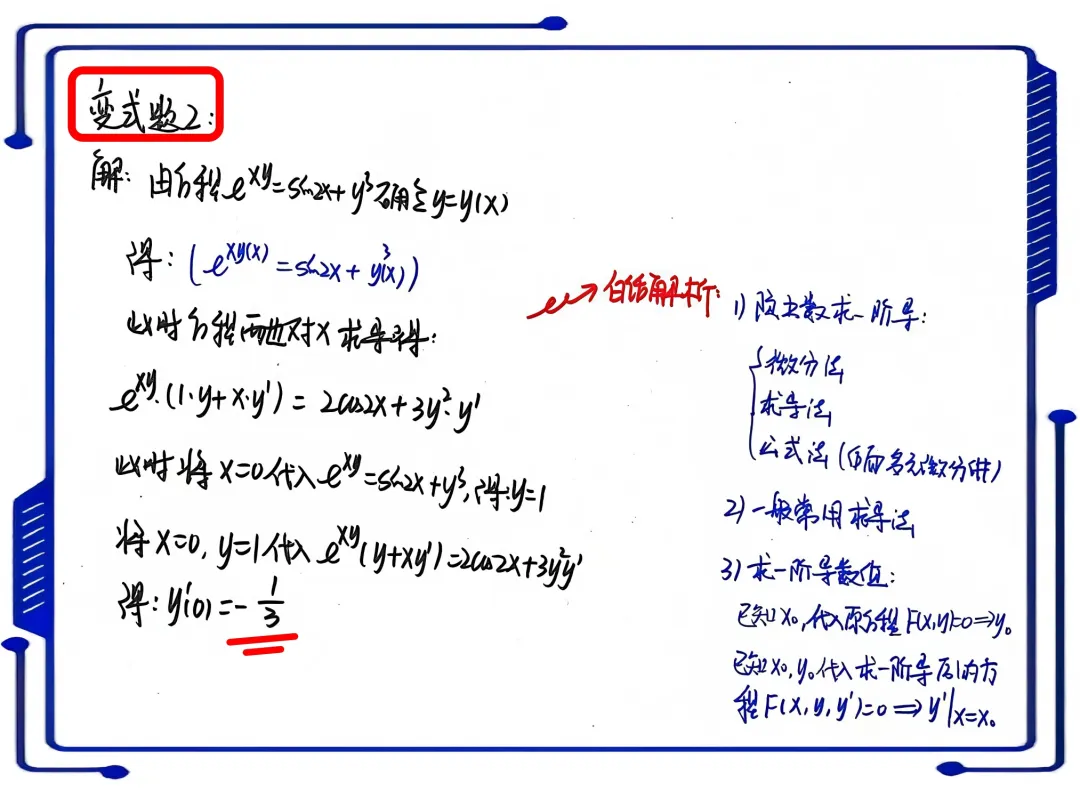 变式题2:
解: 由方程 e^{xy}=sin2x+y³确定y=y(x)
得: (e^{xy(x)}=sin2x+y³(x))
此时方程两边对x求导得:
e^{xy}·(1·y+x·y')=2cos2x+3y²·y'
此时将x=0代入e^{xy}=sin2x+y³,得:y=1
将x=0,y=1代入e^{xy}(y+xy')=2cos2x+3y²y'
得:y'(0)=-1/3
白话解析:
1) 隐函数求一阶导:
{微分法
求导法
公式法(后面多元微分讲)
2) 一般常用求导法
3) 求一阶导数值:
已知x₀,代入原方程F(x,y)=0⇒y₀
已知x₀,y₀代入求一阶导后的方
程F(x,y,y')=0⇒y'|x=x₀